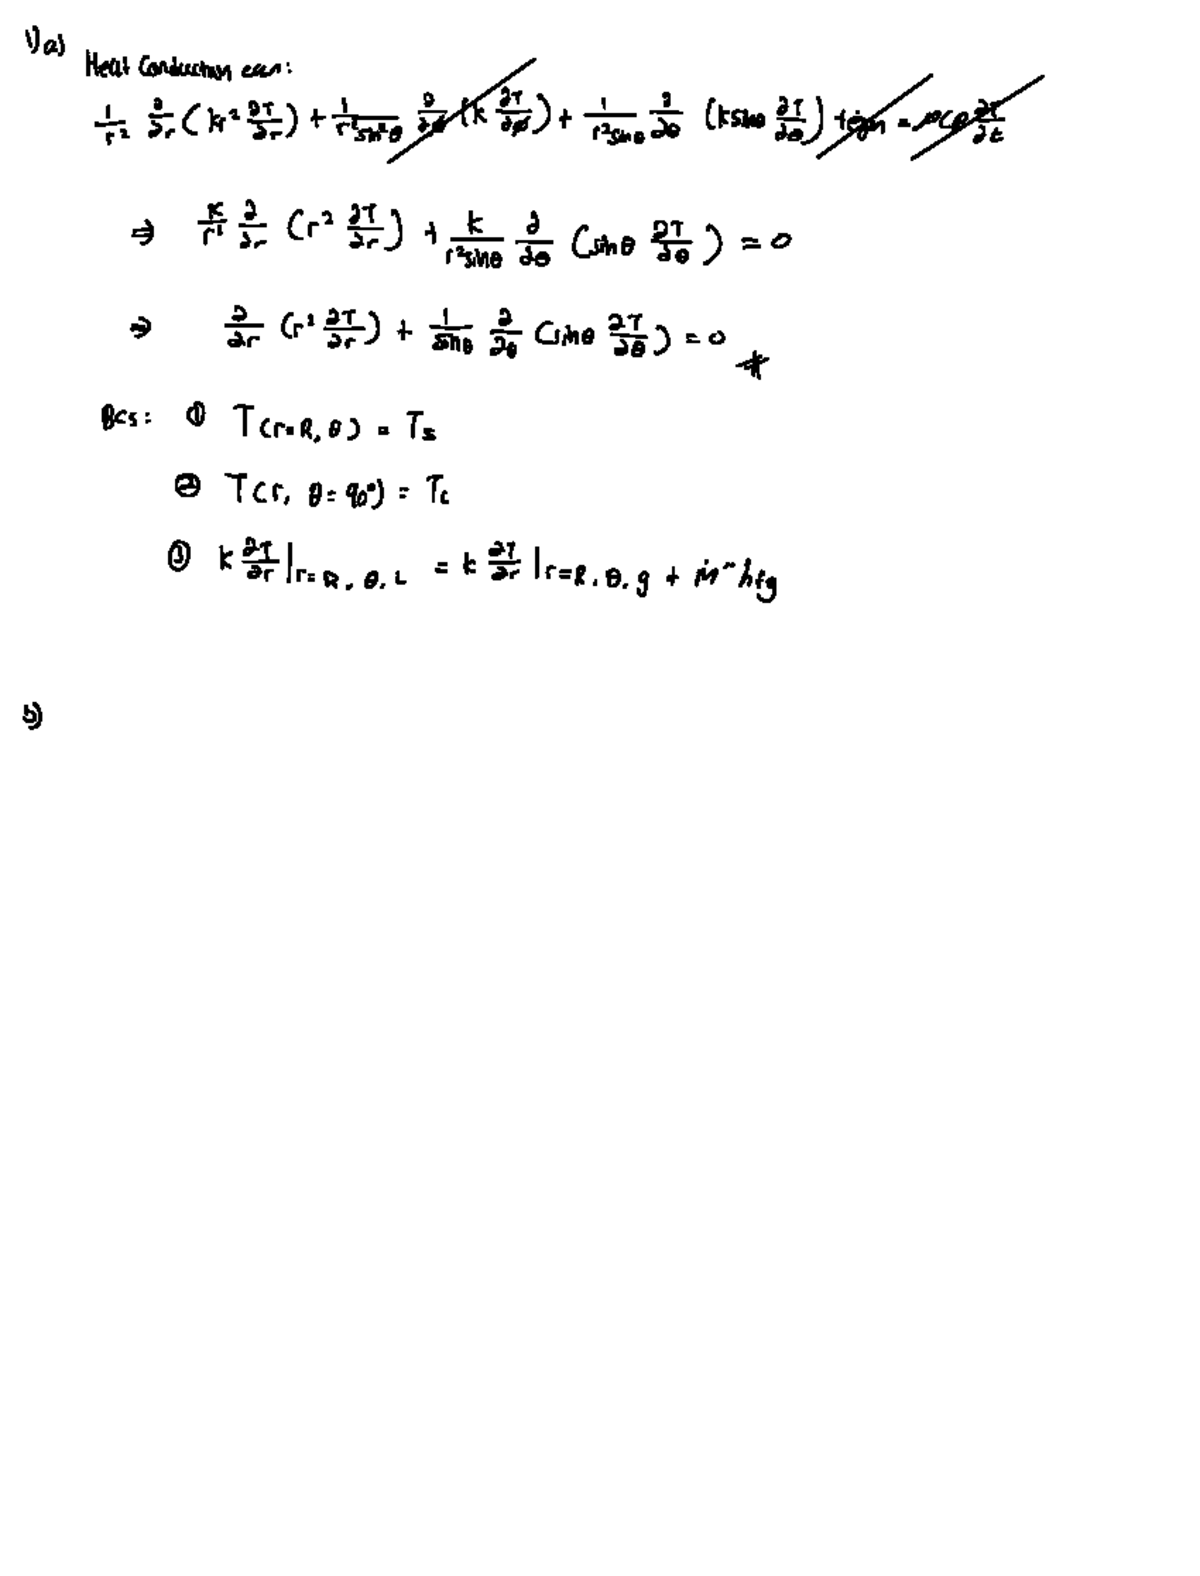 1) a)
Heat Conduction eqn:
1/r² ∂/∂r (kr² ∂T/∂r) + 1/(r² sin²θ) ∂/∂φ (k ∂T/∂φ) + 1/(r² sinθ) ∂/∂θ (k sinθ ∂T/∂θ) + ėgen = ρCp ∂T/∂t
⇒ k/r² ∂/∂r (r² ∂T/∂r) + k/(r² sinθ) ∂/∂θ (sinθ ∂T/∂θ) = 0
⇒ ∂/∂r (r² ∂T/∂r) + 1/sinθ ∂/∂θ (sinθ ∂T/∂θ) = 0
BCs: ① T(r=R, θ) = Ts
② T(r, θ=90°) = Tc
③ k ∂T/∂r |r=R, θ, L = k ∂T/∂r |r=R, θ, g + ṁ" hfg
b)